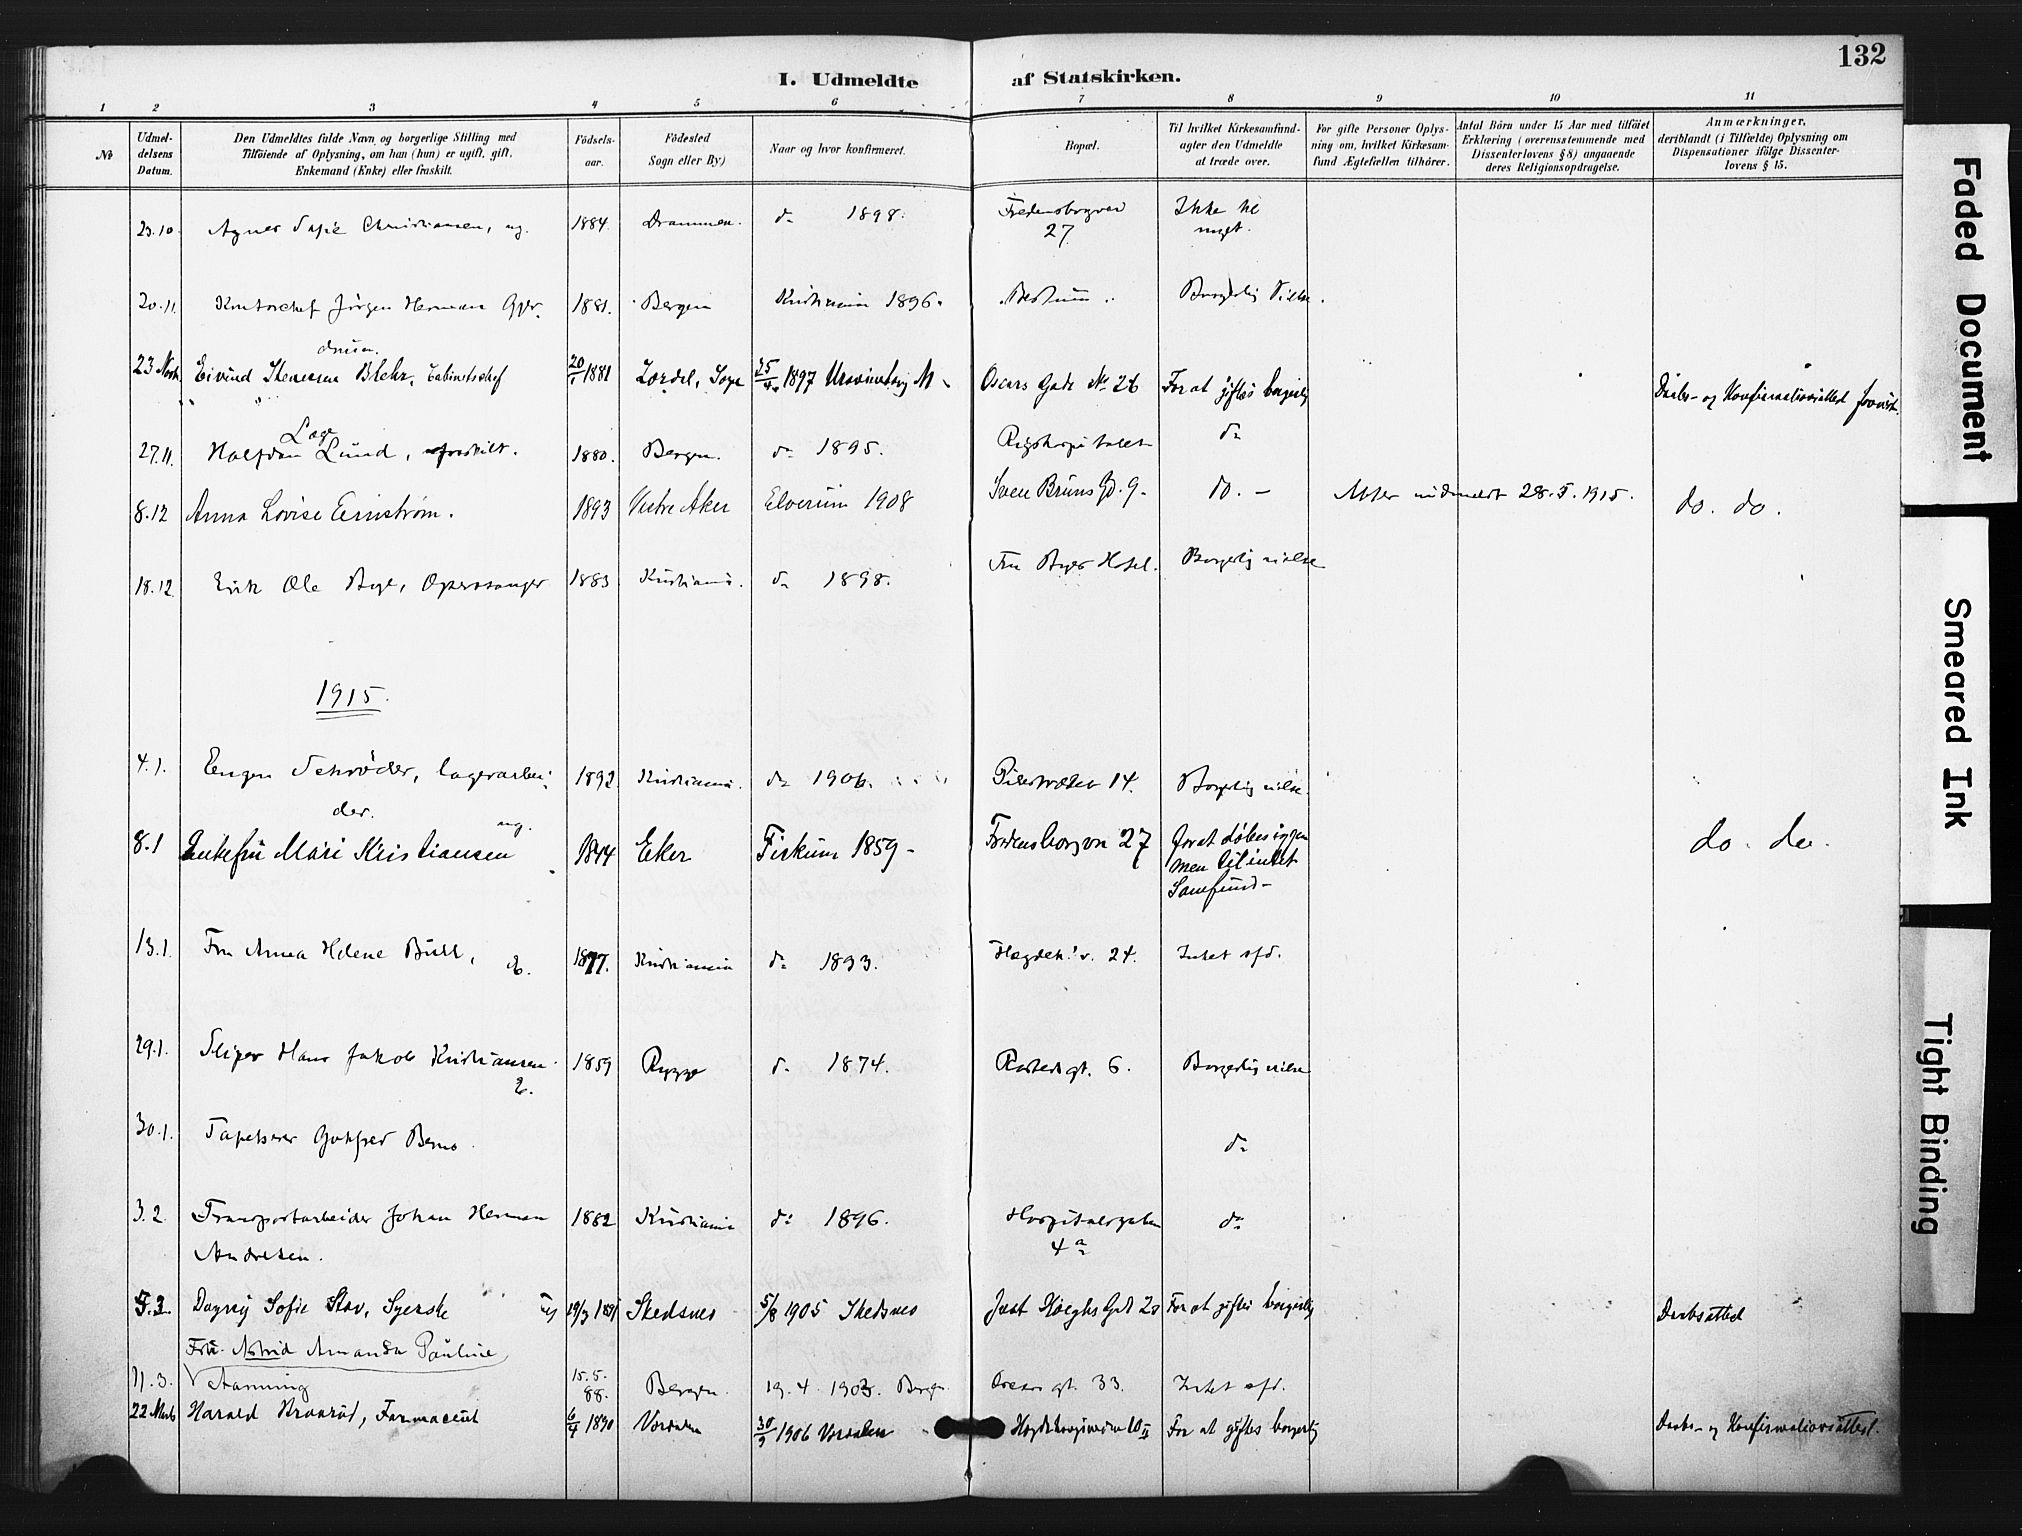 132
I. Udmeldte af Statskirken.
1 2 3 4 5 6 7 8 9 10 11
No
Udmel-
delsens
Datum.
Den Udmeldtes fulde Navn og borgerlige Stilling med
Tilföiende af Oplysning, om han (hun) er ugift, gift,
Enkemand (Enke) eller fraskilt.
Födsels-
aar.
Födested
Sogn eller By)
Naar og hvor konfirmeret.
Bopæl.
Til hvilket Kirkesamfund-
agter den Udmeldte
at træde over.
For gifte Personer Oplys-
ning om, hvilket Kirkesam-
fund Ægtefællen tilhörer.
Antal Börn under 15 Aar med tilföiet
Erklæring (overensstemmende med
Dissenterlovens § 8) angaaende
deres Religionsopdragelse.
Anmærkninger,
deriblandt (i Tilfælde) Oplysning om
Dispensationer ifölge Dissenter-
lovens § 15.
23.10 Agnes Christiansen, ug. 1884 Drammen. do 1898. Fredensborgvei
27
Ikke til
noget.
20.11. Kontorchef Jörgen Herman 1881. Bergen Kristiania 1896. Bestum Borgerlig Vielse.
23 Novb. Eivind Blehr, Cabinetschef 20/1 1881 Lærdal, Sogn 25/4 1897 Uranienborg M. Oscars Gade No 26 For at giftes borgerlig Daabs- og Konfirmationsattest forevist.
27.11. Halfdan Lage Lund, fraskilt. 1880. Bergen. do 1895. Rigshospitalet do
8.12 Anna Lovise Ernstrøm. 1893 Vestre Aker Elverum 1908 Sven Bruns Gd. 9. do. - Atter indmeldt 28.5.1915. do. do.
18.12. Erik Ole Bye, Operasanger 1883 Kristiania. do 1898. Fru Byes Hotel. Borgerlig vielse
1915.
4.1. Eugen Schrøder, lagerarbei-
der. ug.
1892 Kristiania. do 1906. Pilestrædet 14. Borgerlig vielse.
8.1 Enkefru Mari Kristiansen 1844 Eker Fiskum 1859 - Fredensborgvn 27 for at døbes igjen
men til intet
Samfund - do. do.
13.1. Fru Anna Helene Bull, E. 1877. Kristiania do 1893. Hægdeh.v. 24. Intet opd.
29.1. Sliper Hans Jakob Kristiansen.
E.
1859 Rygge do 1874. Rosteds gt. 6. Borgerlig vielse
30.1. Tapetserer Gotfred do
3.2. Transportarbeider Johan Herman
Andresen.
1882 Kristiania do 1896. Hospitalsgaten
4a
do
5.3. Dagny Sofie Stav, Syerske 19/3 1891 Skedsmo 5/8 1905 Skedsmo Just Høeghs Gd. 20 For at giftes borgerlig Daabsattest
Fru Astrid Amanda Pauline
11.3. 15.5.
88. Bergen. 19.4.1903. Bergen. Oscars gt. 33. Intet opd.
22 Marts Harald Braarud, Farmaceut 6/4 1890 Værdalen 30/9 1906 Værdalen For at giftes borgerlig Daabs- og Konfirmationsattest.
Faded Document
Smeared Ink
Tight Binding